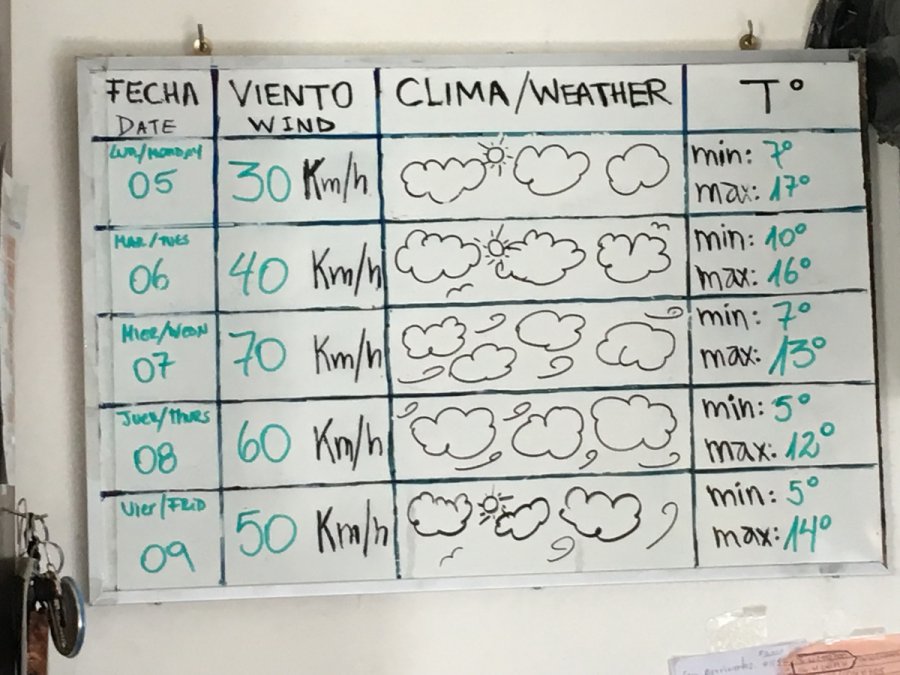 FECHA VIENTO CLIMA/WEATHER T°
DATE WIND
LUN/MONDAY
05 30 Km/h min: 7°
max: 17°
MAR/TUES
06 40 Km/h min: 10°
max: 16°
MIER/WEDN
07 70 Km/h min: 7°
max: 13°
JUEV/THURS
08 60 Km/h min: 5°
max: 12°
VIER/FRID
09 50 Km/h min: 5°
max: 14°